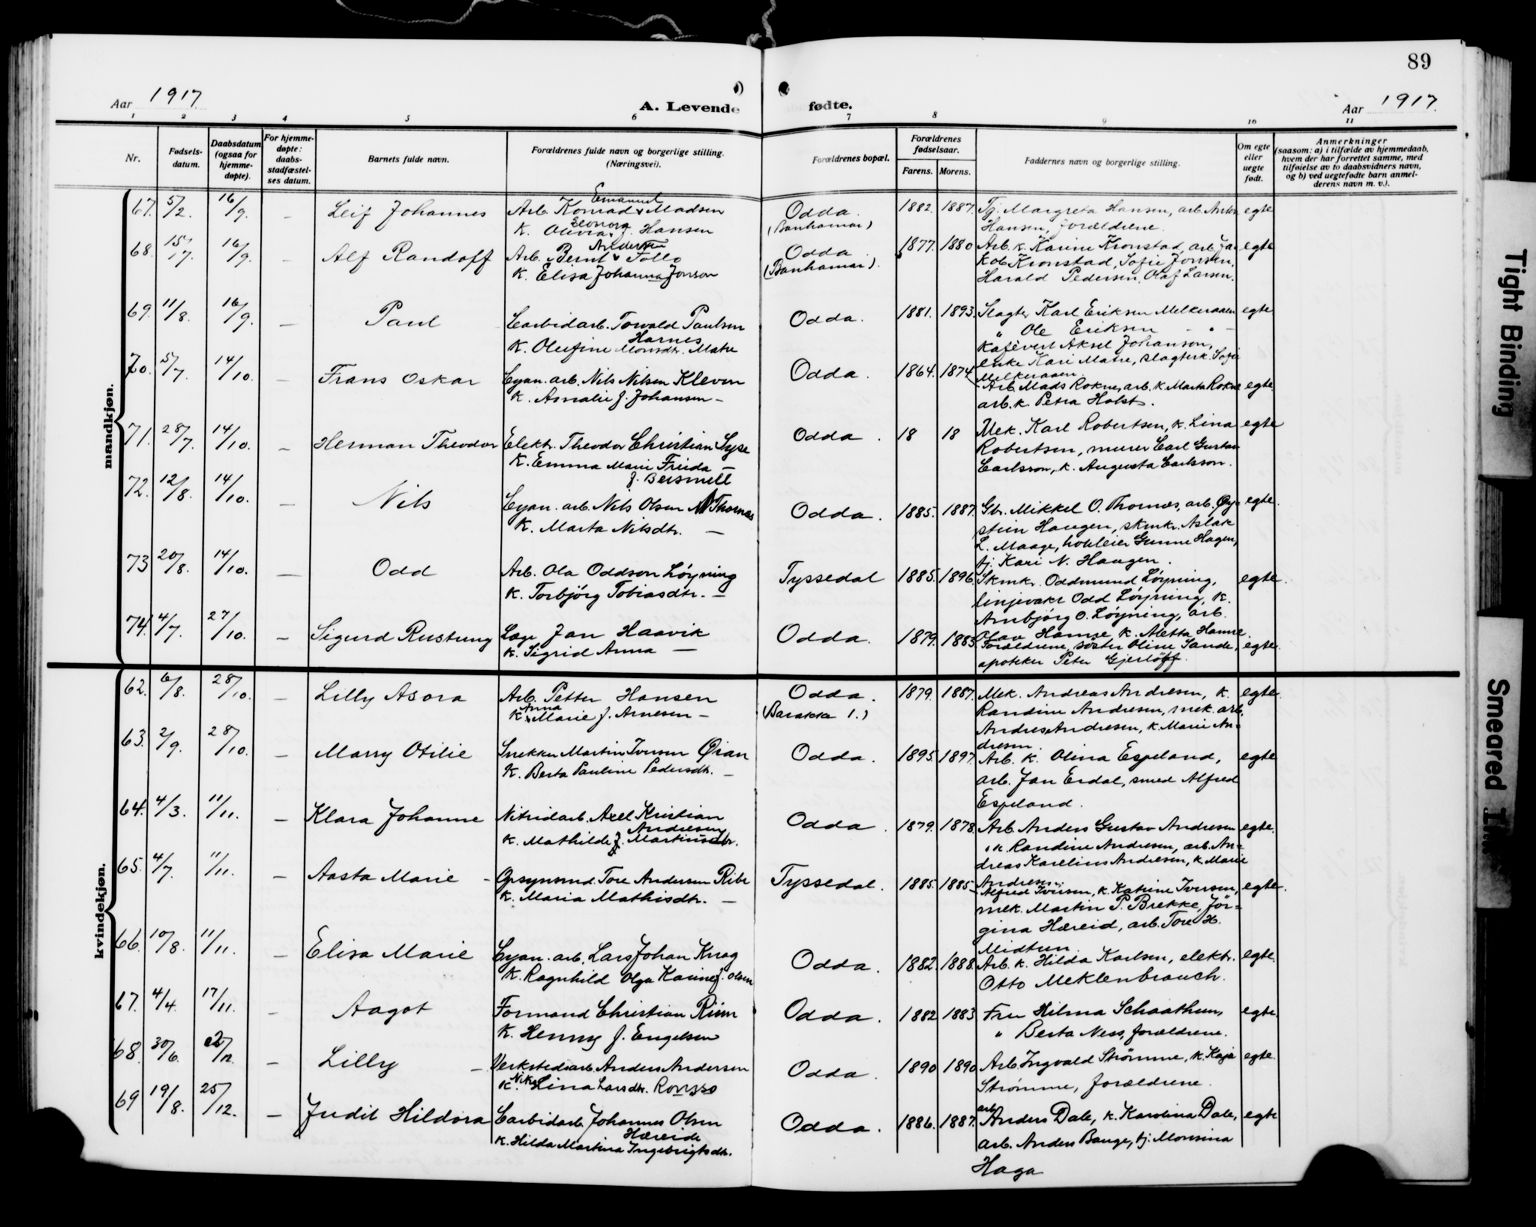 89
Aar 1917.
A. Levende fødte.
Aar 1917.
1 2 3 4 5 6 7 8 9 10 11
Nr.
Fødsels-
datum.
Daabsdatum
(ogsaa for
hjemme-
døpte).
For hjemme-
døpte:
daabs-
stadfæstel-
ses datum.
Barnets fulde navn.
Forældrenes fulde navn og borgerlige stilling.
(Næringsvei).
Forældrenes bopæl.
Forældrenes
fødselsaar.
Farens. Morens.
Faddernes navn og borgerlige stilling.
Om egte
eller
uegte
født.
Anmerkninger
(saasom: a) i tilfælde av hjemmedaab,
hvem der har forrettet samme, med
tilføielse av to daabsvidners navn,
og b) ved uegtefødte barn anmel-
derens navn m. v.).
mandkjøn.
67. 5/2. 16/9. – Leif Johannes
Arb. Konrad Emanuel Madsen
K. Olivia Eleonora f. Hansen
Odda.
(Banhamar)
1882. 1887.
Tj. Margreta Hansen, arb.
Hansen, forældrene.
egte
68. 15/7. 16/9. – Alf Randoff
Arb. Bernt Tollo
K. Elisa Johanna Jonson
Odda
(Banhamar).
1877. 1880
Arb. k. Karine Kronstad, arb. Ja-
kob Kronstad, Sofie Jonsen,
Harald Pedersen, Olaf Larsen.
egte
69. 11/8. 16/9. – Paul
Carbidarb. Torvald Paulsen
Harnes
K. Olufine Monsdtr. Matre
Odda.
1881. 1893.
Slagter Karl Eriksen Melkeraaen
" Ole Eriksen - " -
Aksel Johanson,
enke Kari Marie, slagterk. Sofie
Melkeraaen.
egte
70. 5/7. 14/10. – Frans Oskar
Cyan. arb. Nils Nilsen Kleven
K. Amalie f. Johansen –
Odda.
1864. 1874
Arb. Mads Rokne, arb. k. Marta Rokne
arb. k. Petra Holst.
egte
71. 28/7. 14/10. – Herman Theodor
Elektr. Theodor Christian Syse
K. Emma Marie Frida –
Odda.
18 18
Mek. Karl Robertsen, k. Lina
Robertsen, murer Carl Gustav
Carlsson, k. Augusta Carlsson.
egte
72. 12/8. 14/10. – Nils
Cyan. arb. Nils Olsen Thornæs
K. Marta Nilsdtr. –
Odda.
1885. 1887.
Gbr. Mikkel O. Thornæs, arb. Øy-
stein Haugen, skmkr. Aslak
L. Maage, hoteleier Gunne Hagen,
tj. Kari N. Haugen.
egte.
73 20/8. 14/10. – Odd
Arb. Ola Oddson Løyning
K. Torbjörg Tobiasdtr. –
Tyssedal
1885. 1896.
Skmkr. Oddmund Løyning,
linjevakt Odd Løyning, k.
Anbjörg O. Løyning, arb.
Olav Hamre, k. Aletta Hamre.
egte.
74. 4/7. 27/10. – Sigurd Rustung
Læge Jan Haavik
K. Sigrid Anna –
Odda.
1879. 1885.
Forældrene, søster Oline Sande,
apoteker Peter Gjerløff.
egte.
kvindekjøn.
62. 6/8. 28/10. – Lilly Asora
Arb. Petter Hansen
K. Anna Marie f. Arnesen –
Odda.
(Barakke 1.)
1879. 1887.
Mek. Andreas Andresen, k.
Randine Andresen, mek. arb.
Andreas Andresen, k. Marie An-
dresen.
egte
63. 2/9. 28/10. – Marry Otilie
Snekker Martin Iversen Øian
K. Berta Pauline Pedersdtr. –
Odda.
1895. 1897.
Arb. k. Olina Espeland,
arb. Jan Erdal, smed Alfred
Espeland.
egte
64. 4/3. 11/11. – Klara Johanne
Nitridarb. Axel Kristian
Andresen
K. Mathilde f. Martinsdtr.
Odda.
1879. 1878.
Arb. Anders Gustav Andresen
k. Randine Andresen, arb. An-
dreas Karelius Andresen, k. Marie
Andresen.
egte.
65. 4/7. 11/11. Aasta Marie –
Opsynsmd. Tore Andersen Ribe
K. Maria Mathisdtr. –
Tyssedal.
1885. 1885.
Alfred Iversen, k. Katrine Iversen,
mek. Martin P. Brekke, Jör-
gina Hæreid, arb. Tore H.
Midtun.
egte.
66. 10/8. 11/11. – Elisa Marie
Cyan. arb. Lars Johan Knag
K. Ragnhild Olga Karine f. Olsen
Odda.
1882. 1888.
Arb. k. Hilda Karlsen, elektr.
Otto Meklenbrauch.
egte.
67. 4/4. 17/11. – Aagot
Formand Christian Riim
K. Henny f. Engelsen
Odda.
1882 1883
Fru Hilma Schaathun,
" Berta Ness, forældrene.
egte.
68. 30/6. 2/12. – Lilly –
Verkstedarb. Anders Andersen
K. Lina Larsdtr.
Odda.
1890 1890
Arb. Ingvald Strømme, k. Kaja
Strømme, forældrene.
egte
69 19/8. 25/12. – Judit Hildora
Carbidarb. Johannes Olsen
Hæreide
K. Hilda Martina Ingebrigtsdtr.
Odda.
1886. 1887.
arb. Anders Dale, k. Karolina Dale,
arb. Anders Bauge, tj. Monsina
Haga
egte
Tight Binding
Smeared Ink